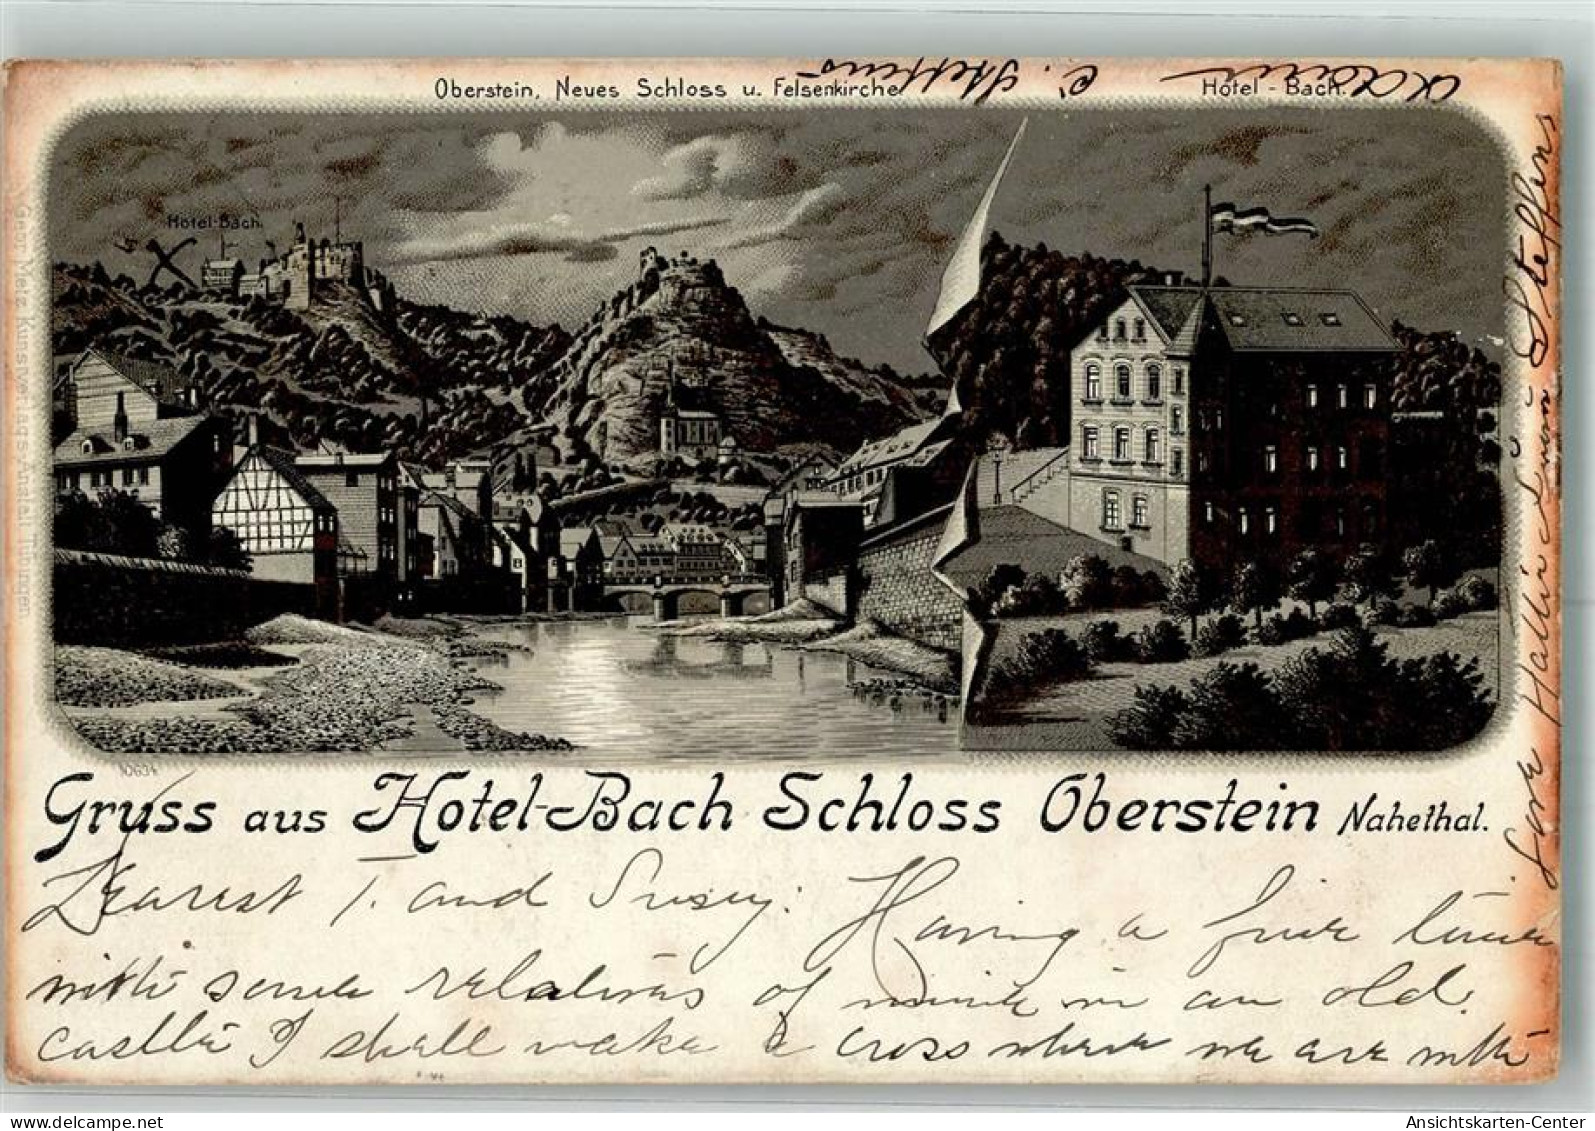 Oberstein, Neues Schloss u. Felsenkirche
Hotel - Bach.
Hotel-Bach.
Geor. Metz, Kunstverlags-Anstalt Tübingen
10634
Gruss aus Hotel-Bach Schloss Oberstein Nahethal.
Dearest T. and Susy: Having a fine time
with some relatives of mine in an old
castle I shall make a cross where we are with
love Hallie Steffens
www.delcampe.net
Ansichtskarten-Center